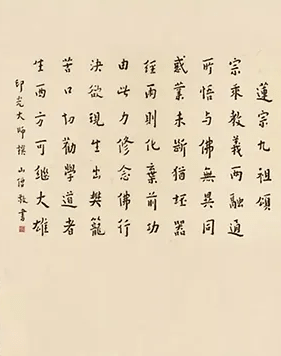 蓮宗九祖頌
宗乘教義兩融通
所悟與佛無異同
惑業未斷猶坯器
經雨則化棄前功
由此力修念佛行
決欲現生出樊籠
苦口切勸學道者
生西方可繼大雄
印光大師撰 山僧 書